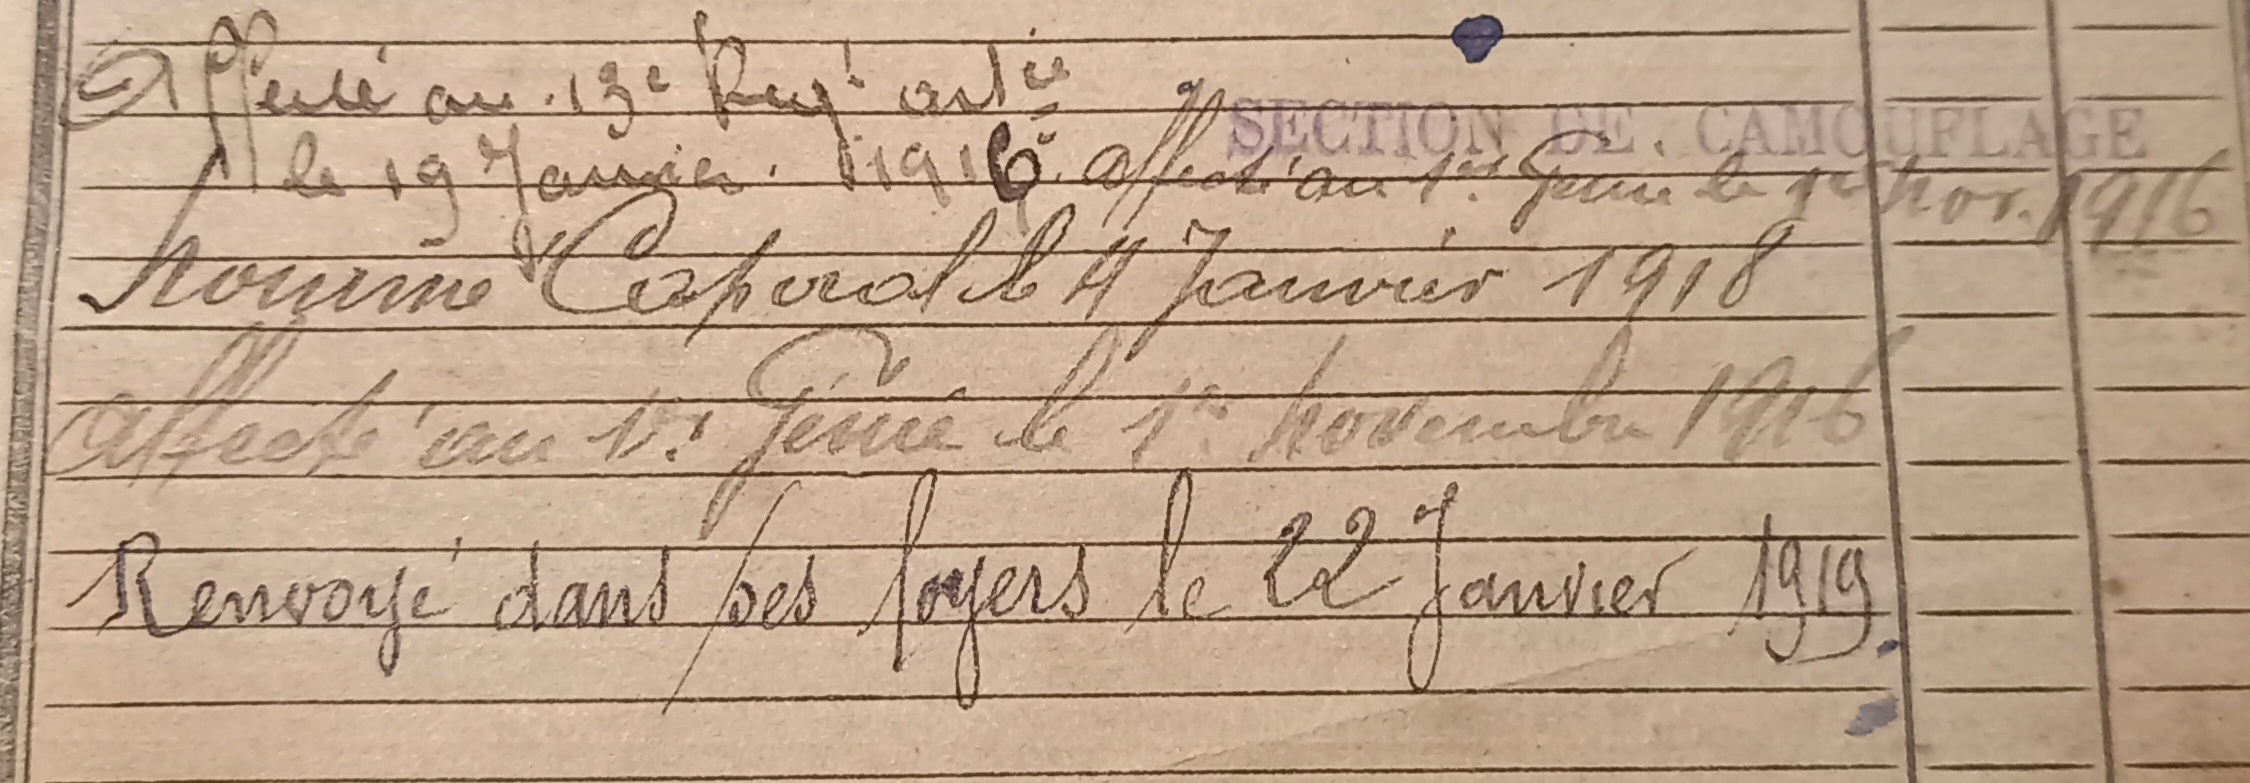 Affecté au 13e Regt artie
SECTION DE CAMOUFLAGE
le 19 Janvier 1916. affecté au 1er Génie le 1er Nov. 1916
nommé Caporal le 4 Janvier 1918
affecté au 1er Génie le 1er novembre 1916
Renvoyé dans ses foyers le 22 Janvier 1919